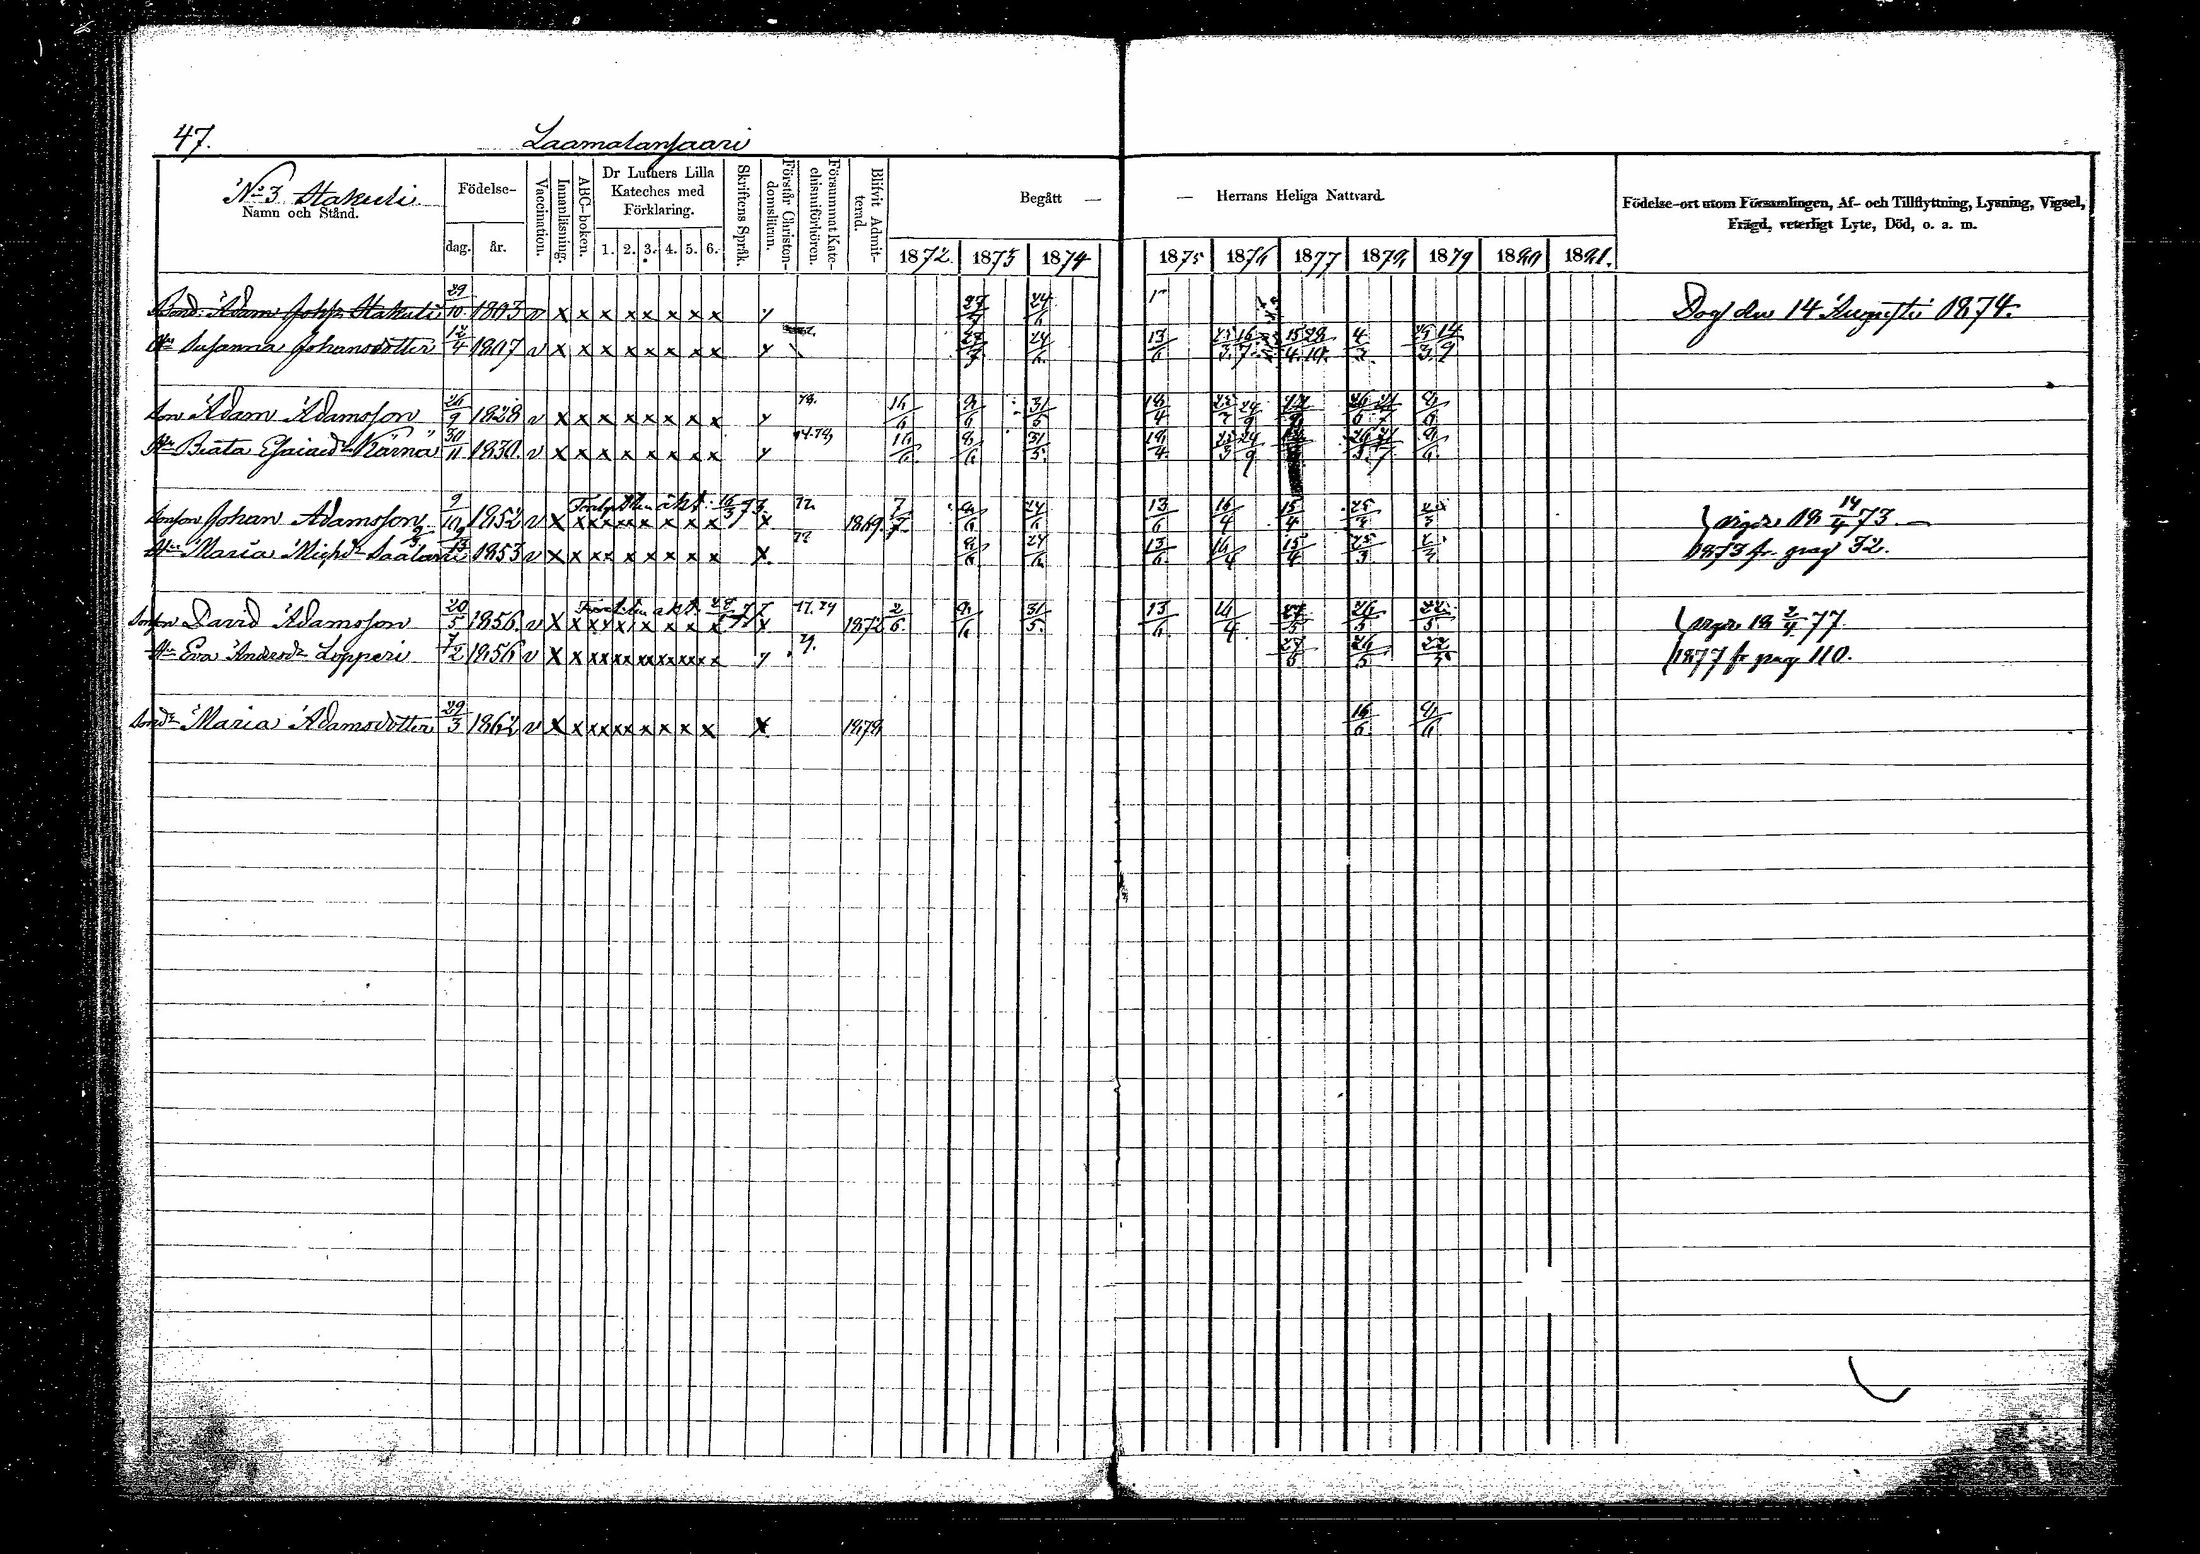 47. Laamalansaari
No 3 Hakuli
Namn och Stånd.
Födelse-
dag. år.
Vaccination.
Innanläsning.
ABC-boken.
Dr Luthers Lilla Kateches med Förklaring.
1. 2. 3. 4. 5. 6.
Skriftens Språk.
Förstår Christendomsläran.
Försummat Katechismiförhören.
Blifvit Admitterad.
Begått — — Herrans Heliga Nattvard.
1872 1873 1874 1875 1876 1877 1878 1879 1880 1881.
Födelse-ort utom Församlingen, Af- och Tillflyttning, Lysning, Vigsel,
Frägd, veterligt Lyte, Död, o. a. m.
Bond. Adam Johs. Hakuli 29/10 1803 v x x x x x x x x y 27/7 24/6 Dog den 14 Augusti 1874.
Hu Susanna Johansdotter 12/4 1807 v x x x x x x x x y 27/7 24/6 13/6 4/3
Son Adam Adamsson 26/9 1828 v x x x x x x x x y 78. 16/6 8/6 31/5 18/4 8/6
Hu Beata Esaiædr Kärnä 30/11 1830. v x x x x x x x x y 74.78, 16/6 8/6 31/5 18/4 8/6
Sonson Johan Adamsson 9/10 1852 v x x x x x x x x x 16/3 73. 72. 1869. 7/7 8/6 24/6 13/6 16/4 15/4 25/3 vigde 18 14/4 73. —
Hu Maria Michdr Saalanti 1853 v x x x x x x x x x 8/6 24/6 13/6 16/4 15/4 25/3 1873 fr. pag 32.
Sonson David Adamsson 20/5 1856. v x x x x x x x x x 77.79 1872 2/6 8/6 31/5 13/6 16/4 27/5 26/5 22/5 vigde 18 2/4 77
Hu Eva Andersdr Lopperi 7/2 1856 v x x xx xx xx xx x x y 79. 27/5 26/5 22/5 1877 fr pag 110.
Sondr Maria Adamsdotter 29/3 1862 v x x xx xx x x x x x 1878 16/6 8/6